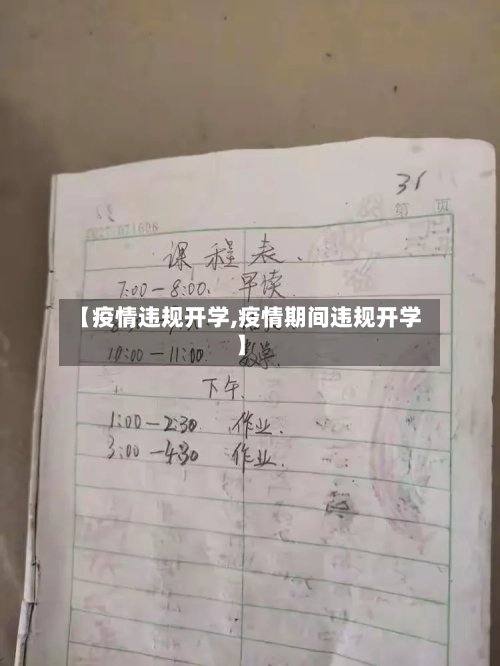 31
第 页
课程表.
7:00—8:00. 早读
【疫情违规开学,疫情期间违规开学
】
10:00—11:00 数学.
下午.
1:00—2:30 作业.
3:00—4:30 作业.